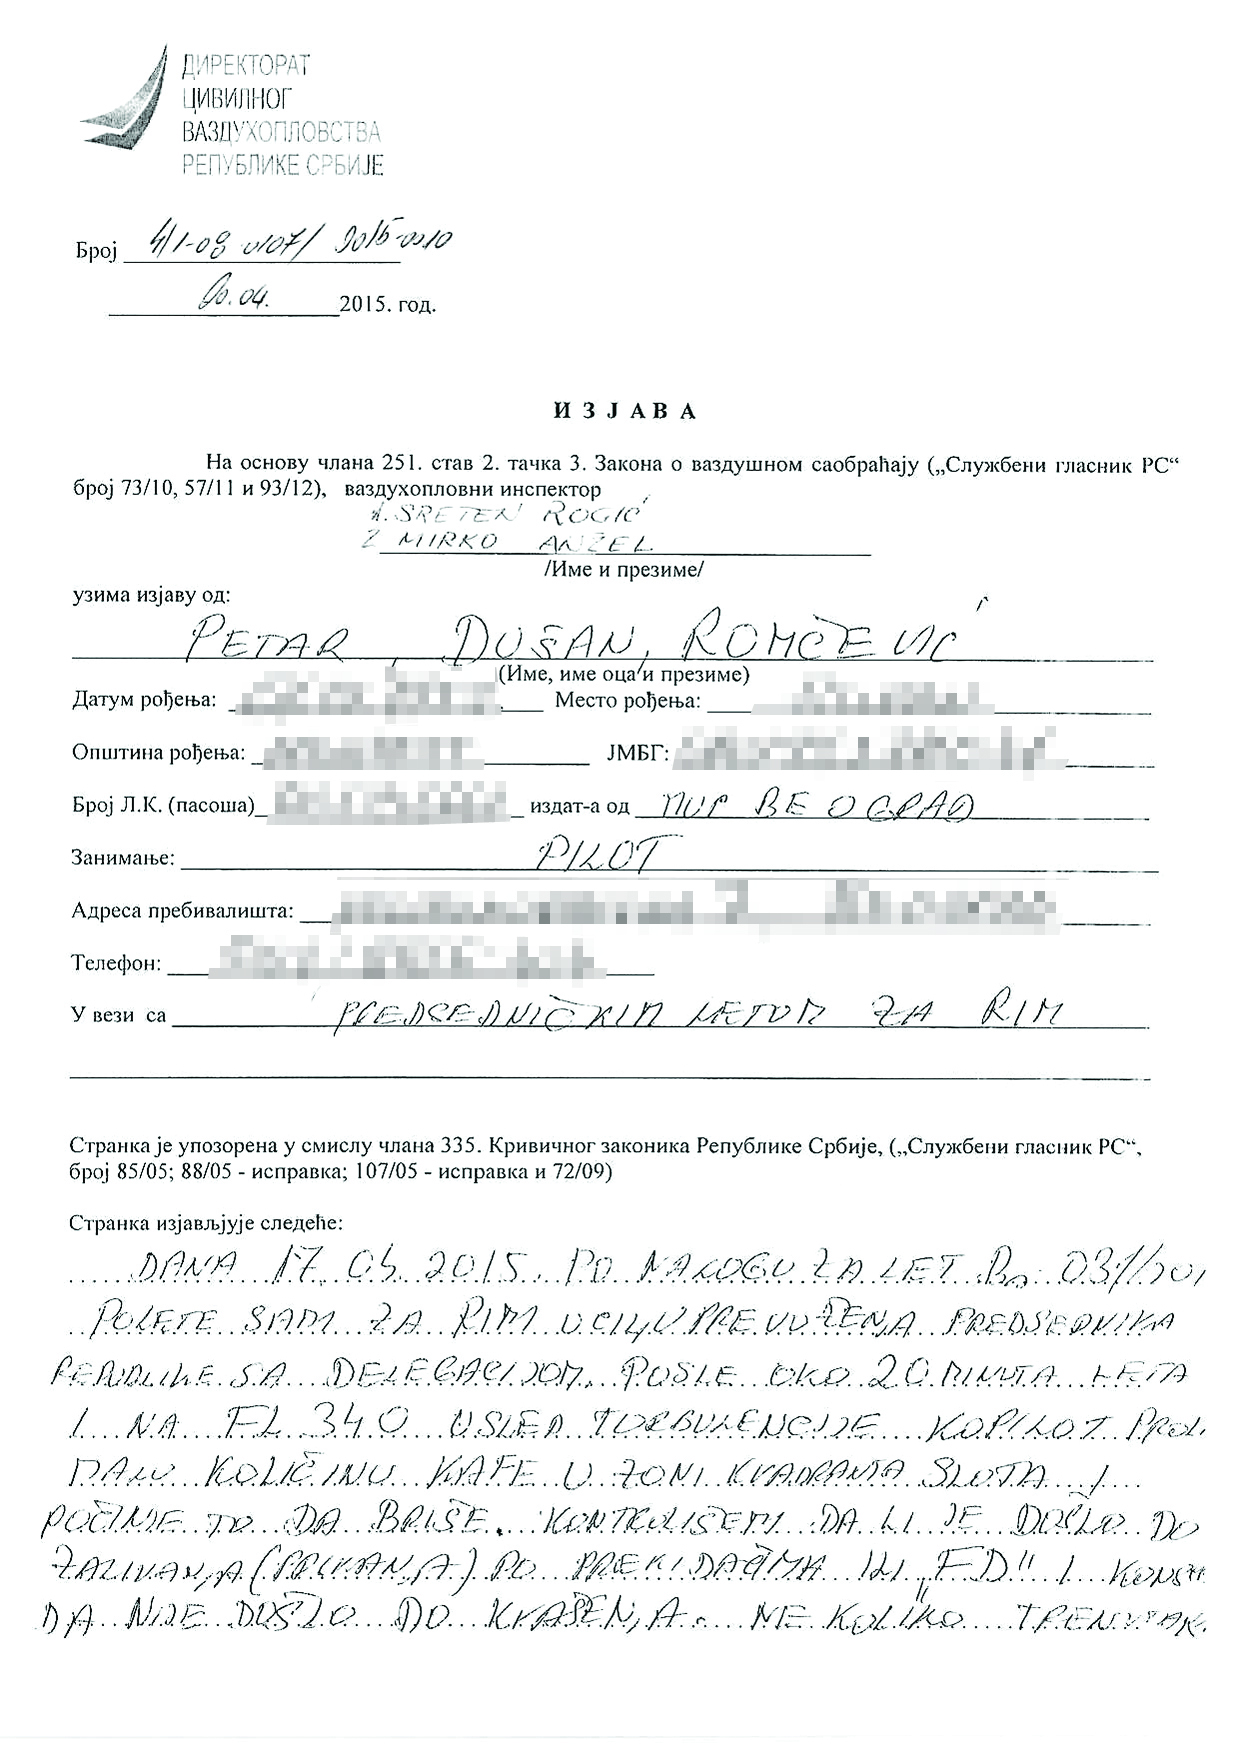 ДИРЕКТОРАТ
ЦИВИЛНОГ
ВАЗДУХОПЛОВСТВА
РЕПУБЛИКЕ СРБИЈЕ
Број 4/1-08-0107/2015-0010
04. 2015. год.
И З Ј А В А
На основу члана 251. став 2. тачка 3. Закона о ваздушном саобраћају („Службени гласник РС“
број 73/10, 57/11 и 93/12), ваздухопловни инспектор
1. SRETEN ROGIĆ
2 MIRKO ANŽEL
/Име и презиме/
узима изјаву од:
PETAR, DUŠAN, ROMČEVIĆ
(Име, име оца и презиме)
Датум рођења: Место рођења:
Општина рођења: ЈМБГ:
Број Л.К. (пасоша) издат-а од MUP BEOGRAD
Занимање: PILOT
Адреса пребивалишта:
Телефон:
У вези са PREDSEDNIČKIM LETOM ZA RIM
Странка је упозорена у смислу члана 335. Кривичног законика Републике Србије, („Службени гласник РС“,
број 85/05; 88/05 - исправка; 107/05 - исправка и 72/09)
Странка изјављује следеће:
DANA 17.04.2015. PO NALOGU ZA LET
POLETE SAM ZA RIM U CILJU PREVOŽENJA PREDSEDNIKA
REPUBLIKE SA DELEGACIJOM. POSLE OKO 20 MINUTA LETA
I NA FL 340 USLED TURBULENCIJE KOPILOT PROLI
MALU KOLIČINU KAFE U ZONI KVADRANTA SLOTA I
POČINJE TO DA BRIŠE. KONTROLIŠEM DA LI JE DOŠLO DO
ZALIVANJA (PRSKANJA) PO PREKIDAČIMA ILI „FD" I
DA NIJE DOŠLO DO KVAŠENJA. NEKOLIKO TRENUTAK